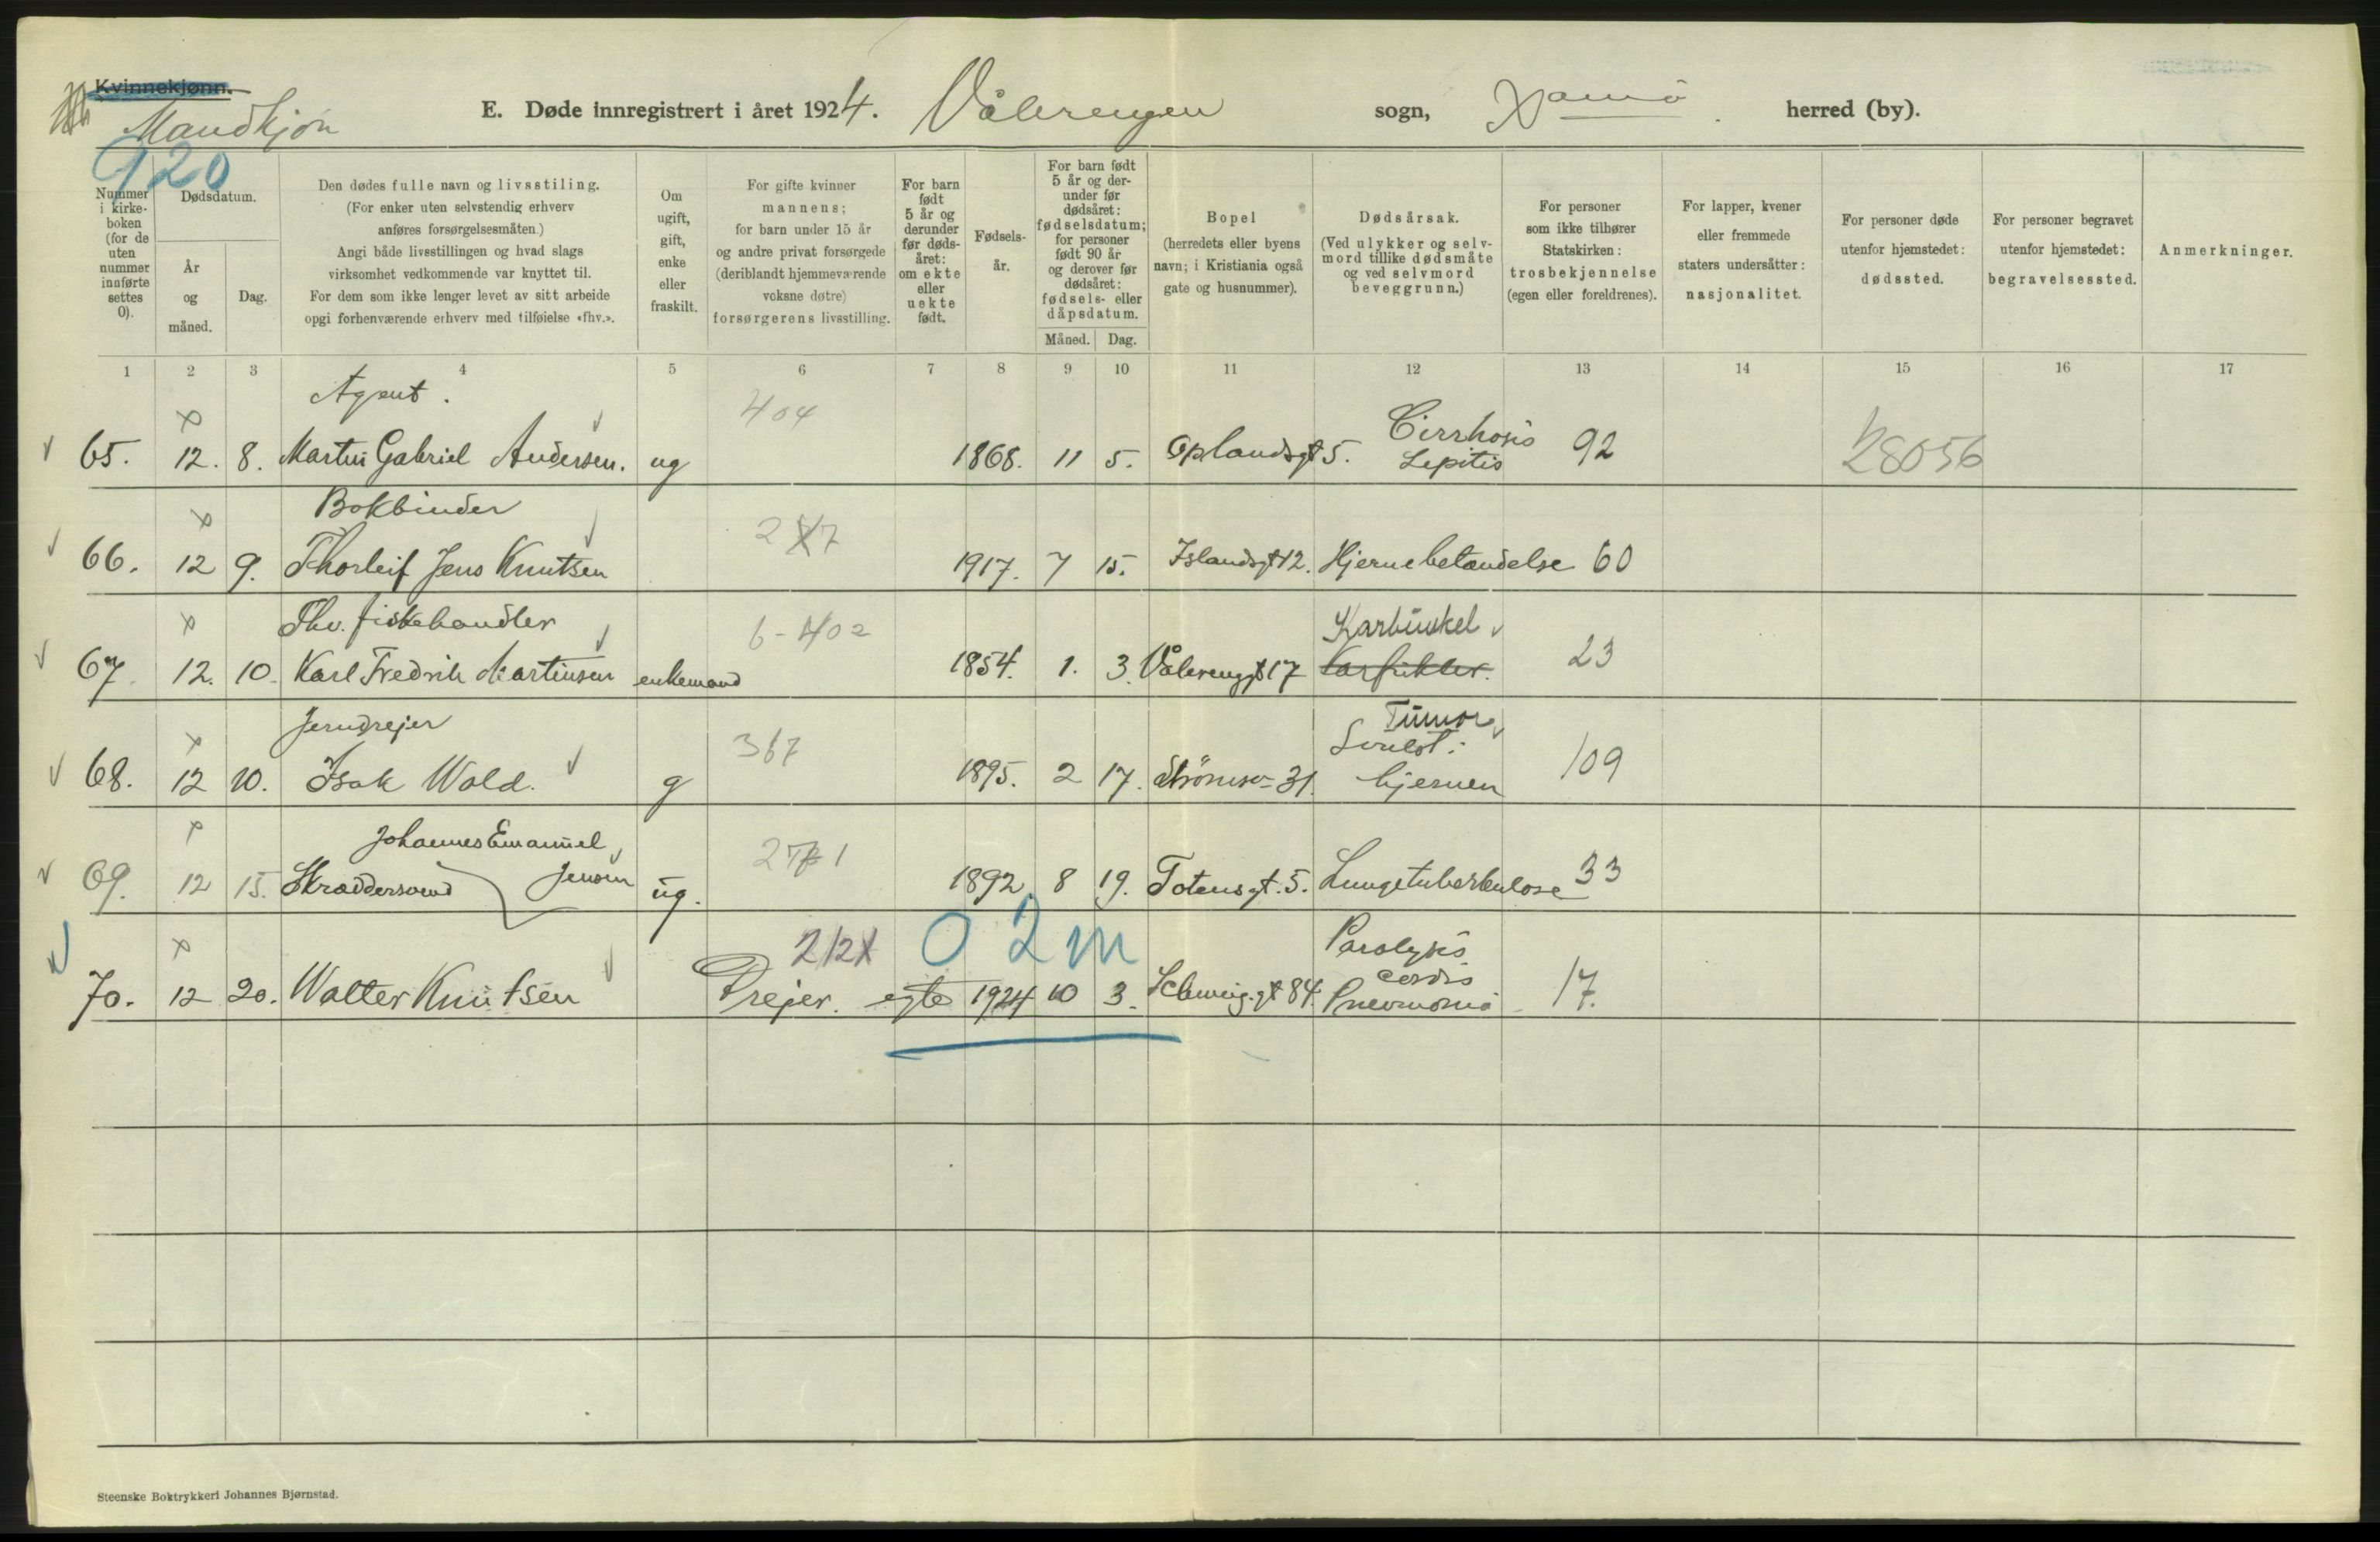 Kvinnekjønn.
Mandkjøn
E. Døde innregistrert i året 1924. Vålerengen sogn, Xania herred (by).
920
Nummer i kirke-boken (for de uten nummer innførte settes 0).
Dødsdatum.
År og måned.
Dag.
Den dødes fulle navn og livsstiling.
(For enker uten selvstendig erhverv
anføres forsørgelsesmåten)
Angi både livsstillingen og hvad slags
virksomhet vedkommende var knyttet til.
For dem som ikke lenger levet av sitt arbeide
opgi forhenværende erhverv med tilføielse «fhv.».
Om ugift, gift, enke eller fraskilt.
For gifte kvinner
mannens;
for barn under 15 år
og andre privat forsørgede
(deriblandt hjemmeværende
voksne døtre)
forsørgerens livsstilling.
For barn født 5 år og derunder før døds-året: om ekte eller uekte født.
Fødsels-år.
For barn født 5 år og der-under før dødsåret: fødselsdatum; for personer født 90 år og derover før dødsåret: fødsels- eller dåpsdatum.
Måned. Dag.
Bopel
(herredets eller byens
navn; i Kristiania også
gate og husnummer).
Dødsårsak.
(Ved ulykker og selv-
mord tillike dødsmåte
og ved selvmord
beveggrunn.)
For personer
som ikke tilhører
Statskirken:
trosbekjennelse
(egen eller foreldrenes).
For lapper, kvener
eller fremmede
staters undersåtter:
nasjonalitet.
For personer døde
utenfor hjemstedet:
dødssted.
For personer begravet
utenfor hjemstedet:
begravelsessted.
Anmerkninger.
1 2 3 4 5 6 7 8 9 10 11 12 13 14 15 16 17
Agent. 404
65. 12. 8. Martin Gabriel Andersen. ug 1868. 11 5. Oplandsgt 5. Cirrhosis 92 28056
Lepitis
Bokbinder 2
66. 12 9. Thorleif Jens Knutsen 1917. 7 15. Islandsgt 12. Hjernebetændelse 60
Fhv. fiskehandler 6-402 Karbunkel
67. 12. 10. Karl Fredrik Martinsen enkemand 1854. 1. 3. Vålerenggt 17 23
Jerndrejer 367 Tumor
Svulst i
68. 12 10. Isak Wold. g 1895. 2 17. Strömsv- 31. hjernen 109
Johannes Emanuel
69. 12 15. Skræddersvend Jensen ug. 1892 8 19. Totensgt. 5. Lungetuberkulose 33
212 0 2 m Paralysis
cordis
70. 12 20. Walter Knutsen Drejer. egte 1924 10 3. Schweigs.gt 84. Pneumoni 17.
Steenske Boktrykkeri Johannes Bjørnstad.